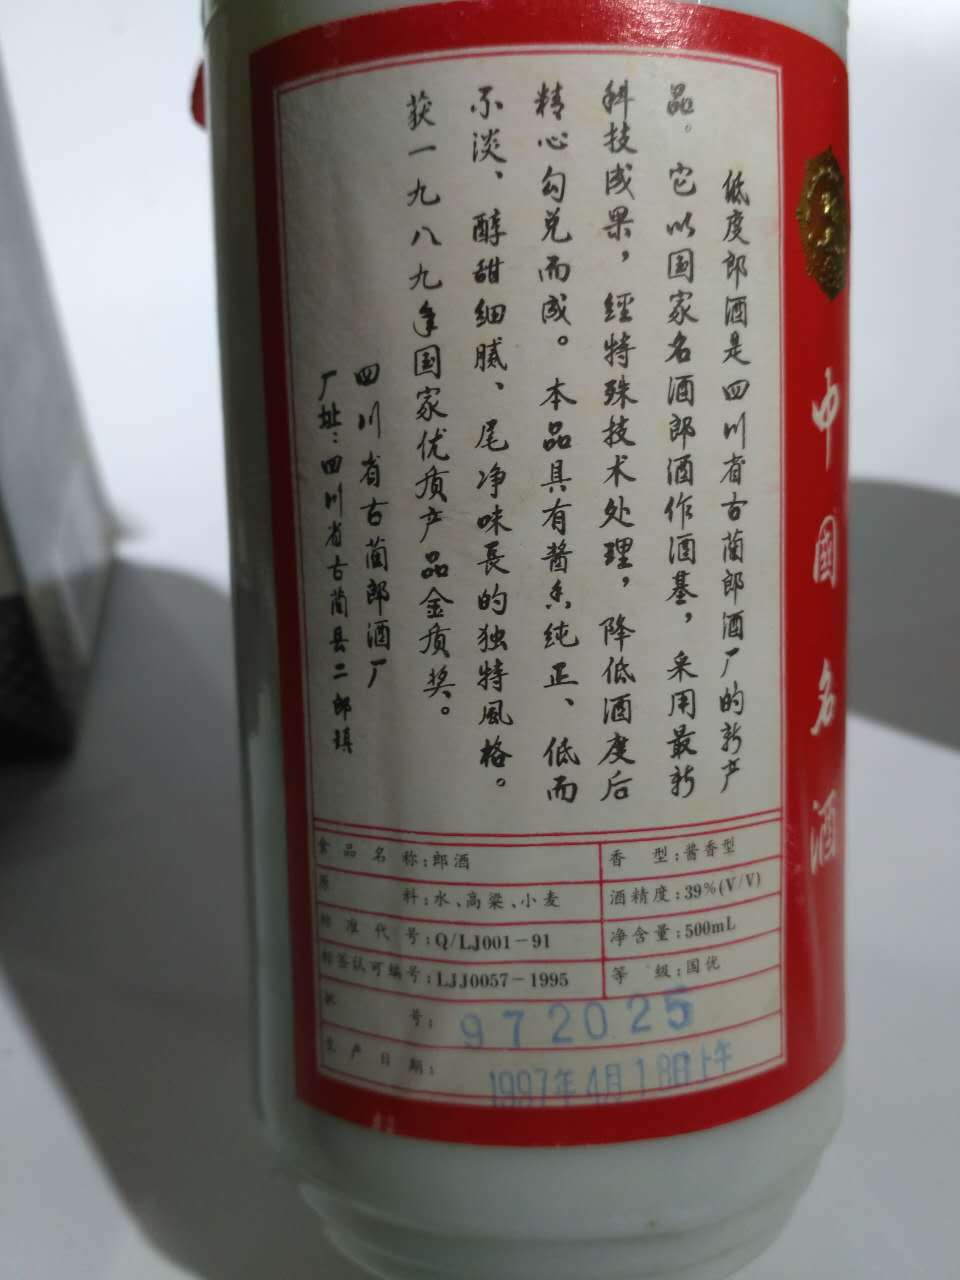 低度郎酒是四川省古蔺郎酒厂的新产
品。它以国家名酒郎酒作酒基，采用最新
科技成果，经特殊技术处理，降低酒度后
精心勾兑而成。本品具有酱香纯正、低而
不淡、醇甜细腻、尾净味長的独特風格。
获一九八九年国家优质产品金质奖。
四川省古蔺郎酒厂
厂址：四川省古蔺县二郎镇
中國名酒
食品名称：郎酒
香型：酱香型
原料：水、高粱、小麦
酒精度：39%(V/V)
标准代号：Q/LJ001-91
净含量：500mL
标签认可编号：LJJ0057-1995
等级：国优
批号：972025
生产日期：1997年4月18日上午